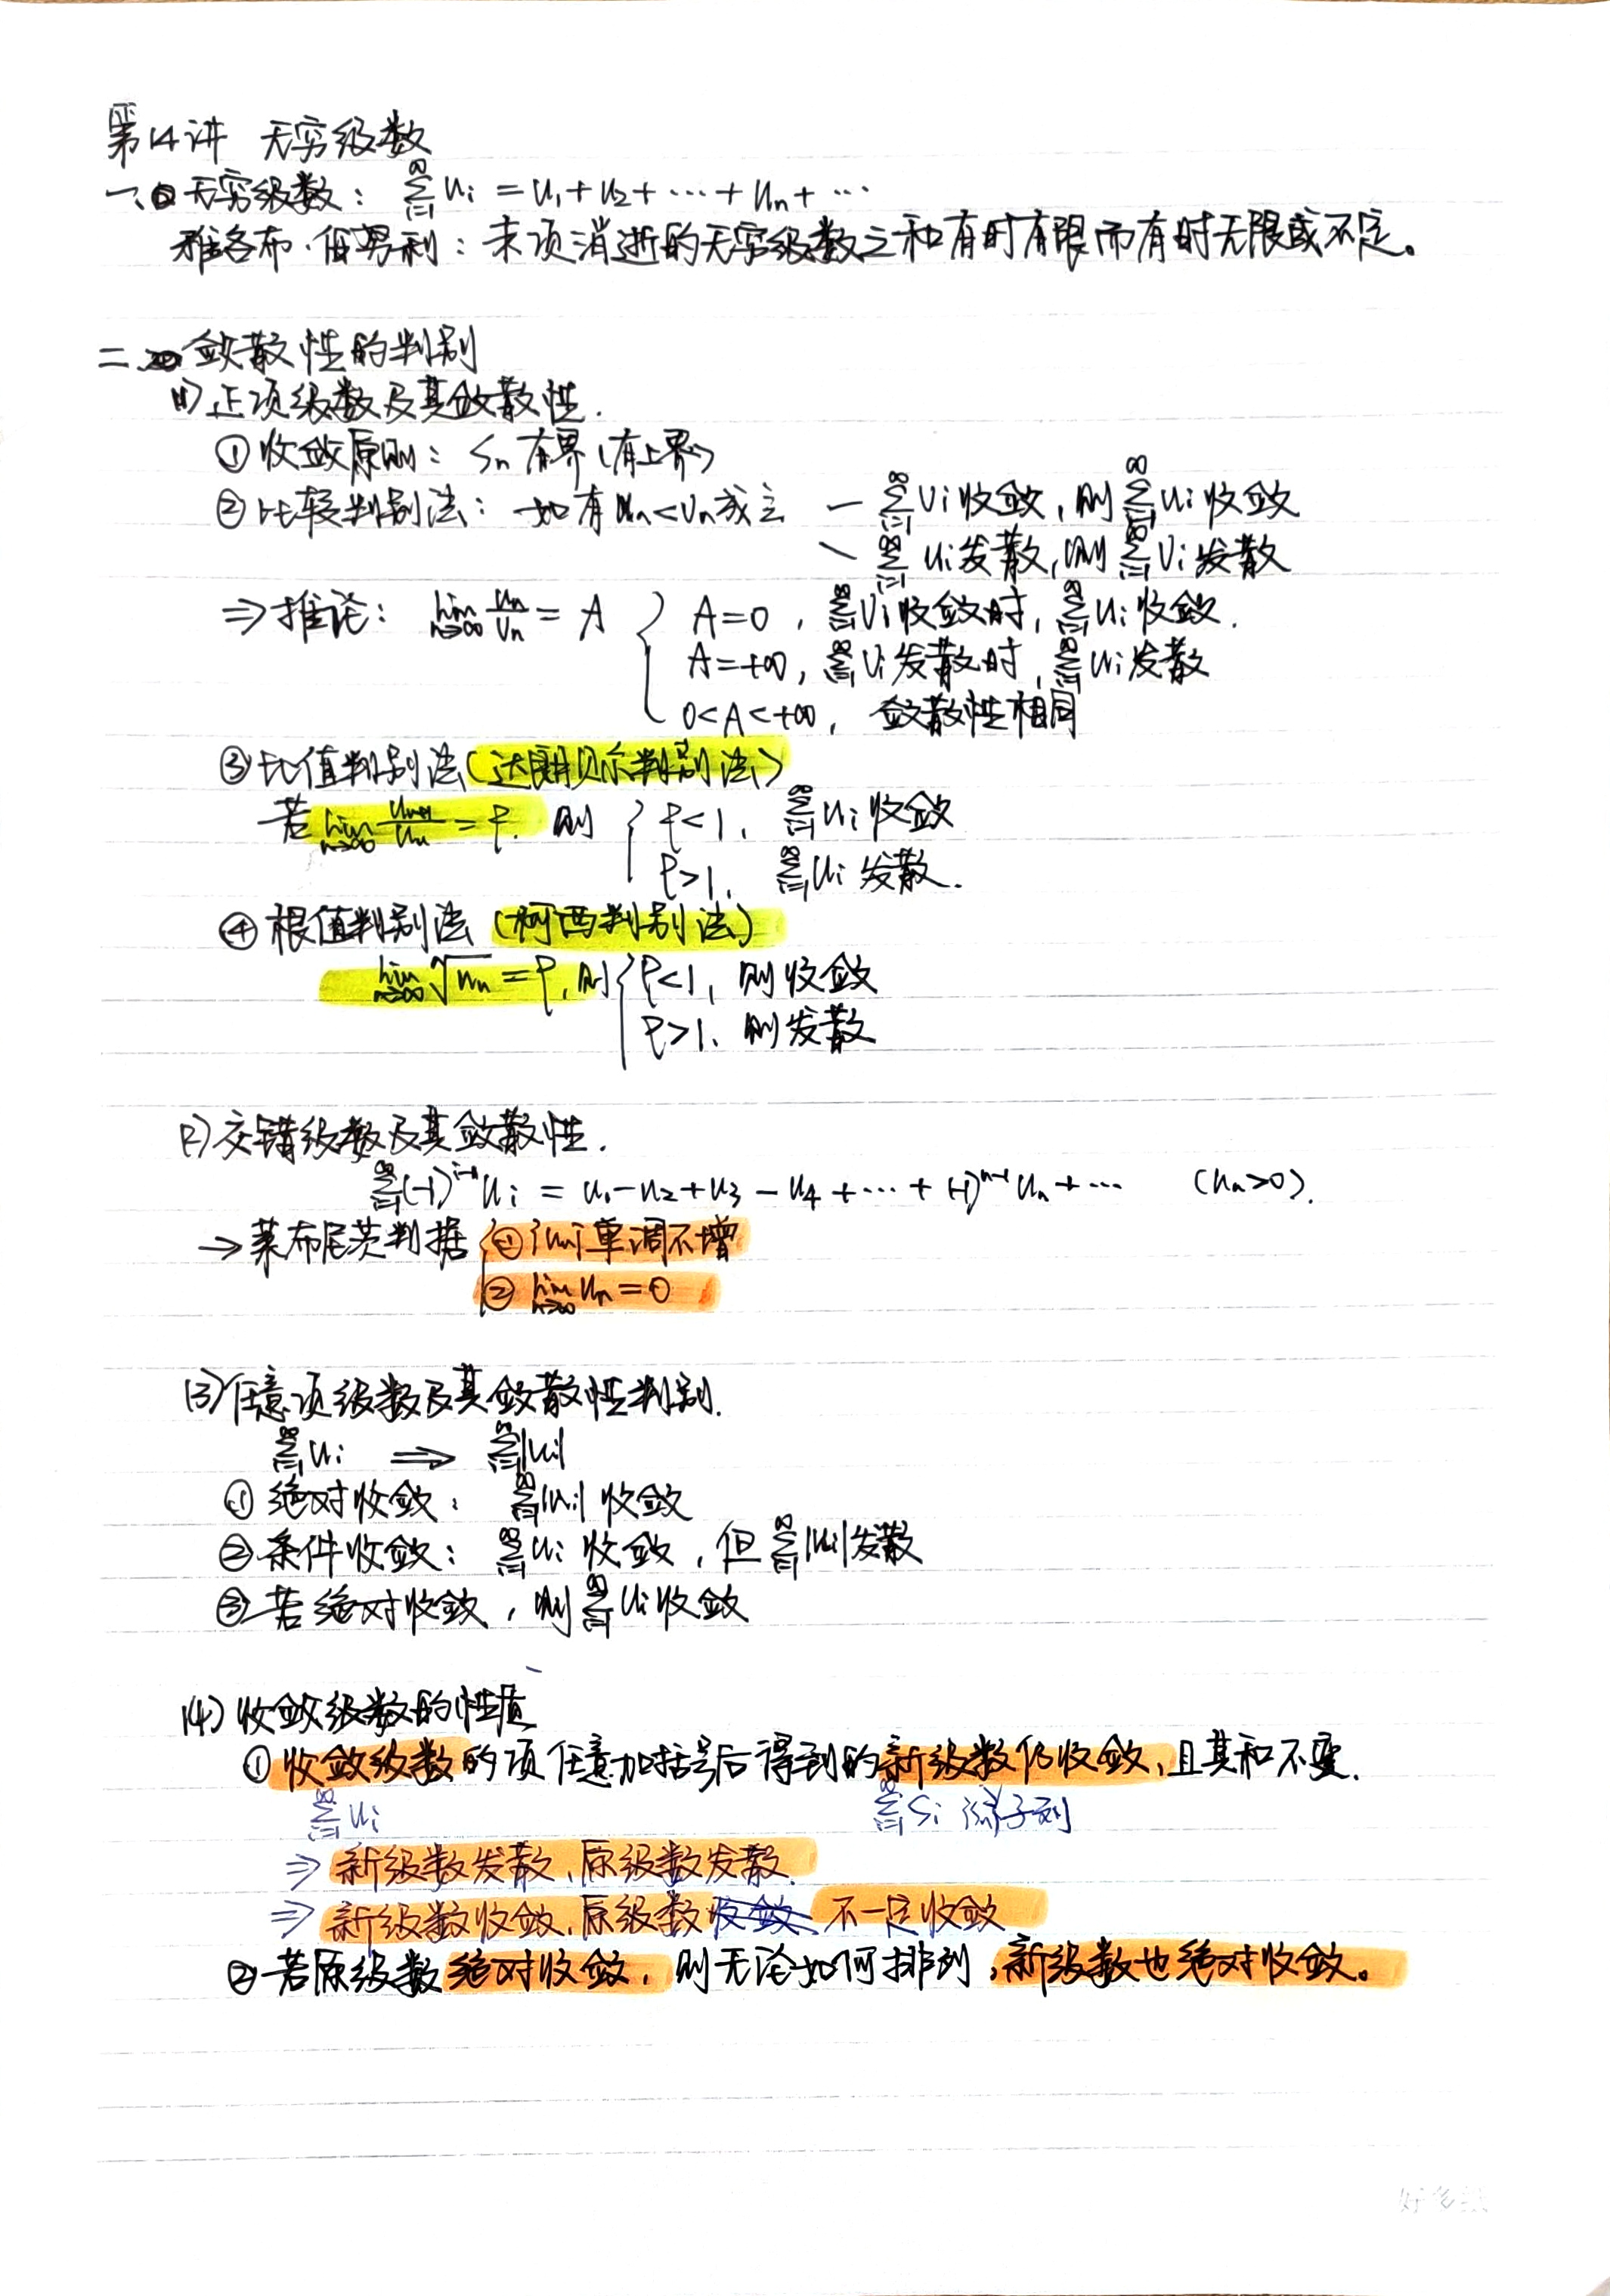 第14讲 无穷级数
一、无穷级数：∑_{i=1}^{∞} u_i = u_1 + u_2 + ⋯ + u_n + ⋯
雅各布·伯努利：末项消逝的无穷级数之和有时有限而有时无限或不定。
二、敛散性的判别
(1) 正项级数及其敛散性.
① 收敛原则：S_n 有界(有上界)
② 比较判别法：如有 u_n < v_n 成立 — ∑_{i=1}^{∞} v_i 收敛，则 ∑_{i=1}^{∞} u_i 收敛
\ ∑_{i=1}^{∞} u_i 发散，则 ∑_{i=1}^{∞} v_i 发散
⇒ 推论：lim_{n→∞} u_n/v_n = A { A=0，∑_{i=1}^{∞} v_i 收敛时，∑_{i=1}^{∞} u_i 收敛.
A=+∞，∑_{i=1}^{∞} v_i 发散时，∑_{i=1}^{∞} u_i 发散
0<A<+∞，敛散性相同
③ 比值判别法(达朗贝尔判别法)
若 lim_{n→∞} u_{n+1}/u_n = ρ，则 { ρ<1，∑_{i=1}^{∞} u_i 收敛
ρ>1，∑_{i=1}^{∞} u_i 发散.
④ 根值判别法 (柯西判别法)
lim_{n→∞} √u_n = ρ，则 { ρ<1，则收敛
ρ>1、则发散
(2) 交错级数及其敛散性.
∑_{i=1}^{∞} (-1)^{i-1} u_i = u_1 - u_2 + u_3 - u_4 + ⋯ + (-1)^{n-1} u_n + ⋯ (u_n>0).
→ 莱布尼茨判据 { ① {u_n} 单调不增
② lim_{n→∞} u_n = 0
(3) 任意项级数及其敛散性判别.
∑_{i=1}^{∞} u_i ⟹ ∑_{i=1}^{∞} |u_i|
① 绝对收敛：∑_{i=1}^{∞} |u_i| 收敛
② 条件收敛：∑_{i=1}^{∞} u_i 收敛，但 ∑_{i=1}^{∞} |u_i| 发散
③ 若绝对收敛，则 ∑_{i=1}^{∞} u_i 收敛
(4) 收敛级数的性质
① 收敛级数的项任意加括号后得到的新级数仍收敛，且其和不变.
∑_{i=1}^{∞} u_i ∑_{i=1}^{∞} S_i {S_n}子列
⇒ 新级数发散，原级数发散.
⇒ 新级数收敛，原级数不一定收敛
② 若原级数绝对收敛，则无论如何排列，新级数也绝对收敛。